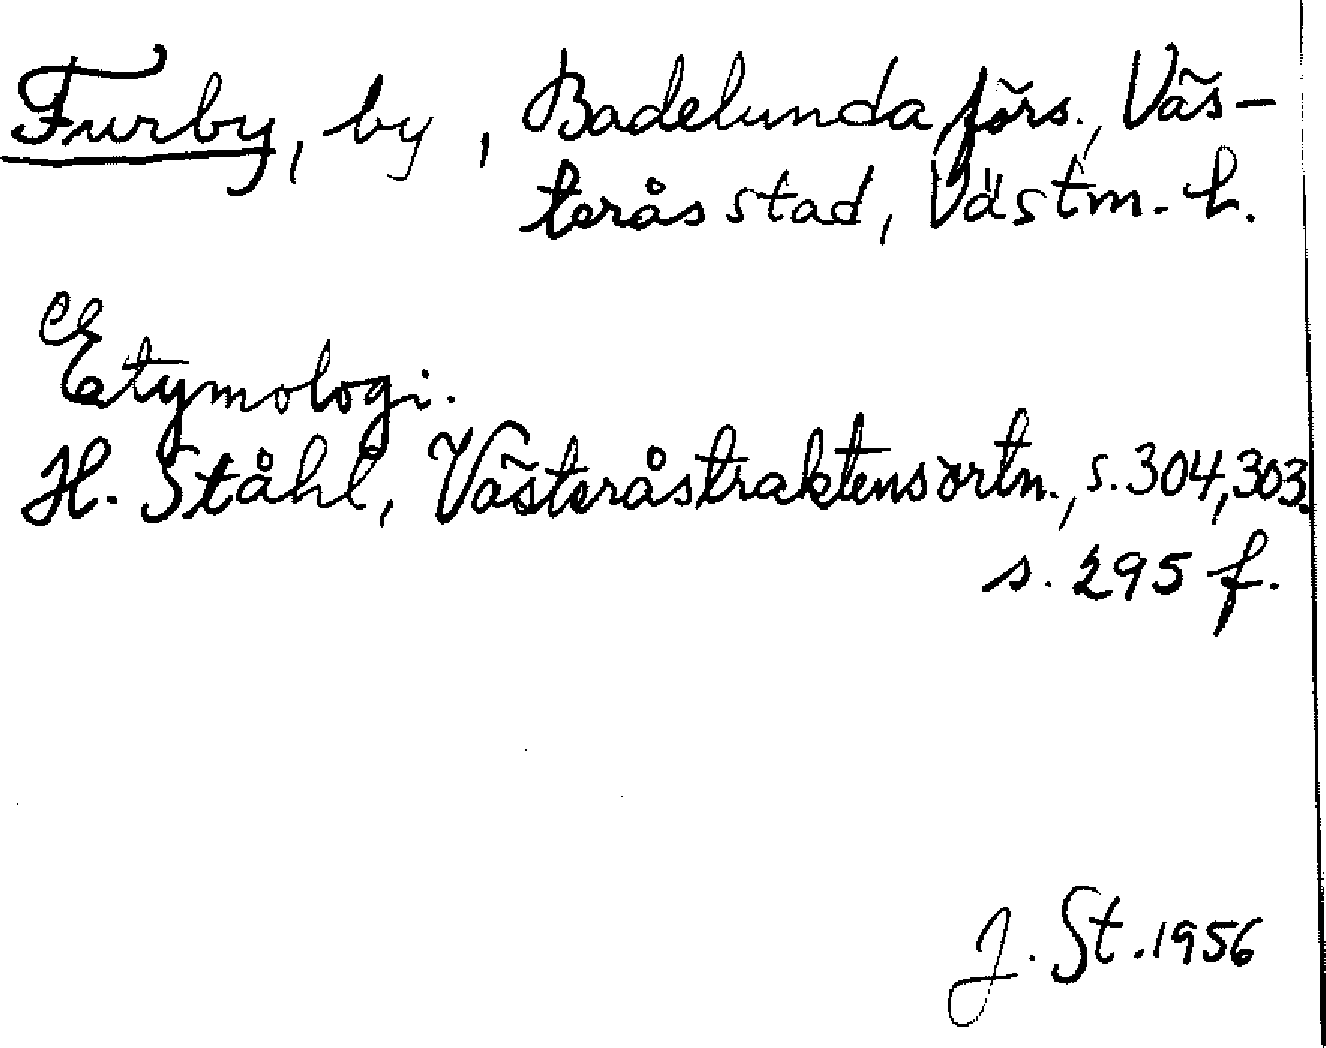 Furby, by, Badelunda förs., Väs-
terås stad, Västm. l.
Etymologi.
H. Ståhl, Västeråstraktens ortn., s. 304, 303.
s. 295 f.
J. St. 1956